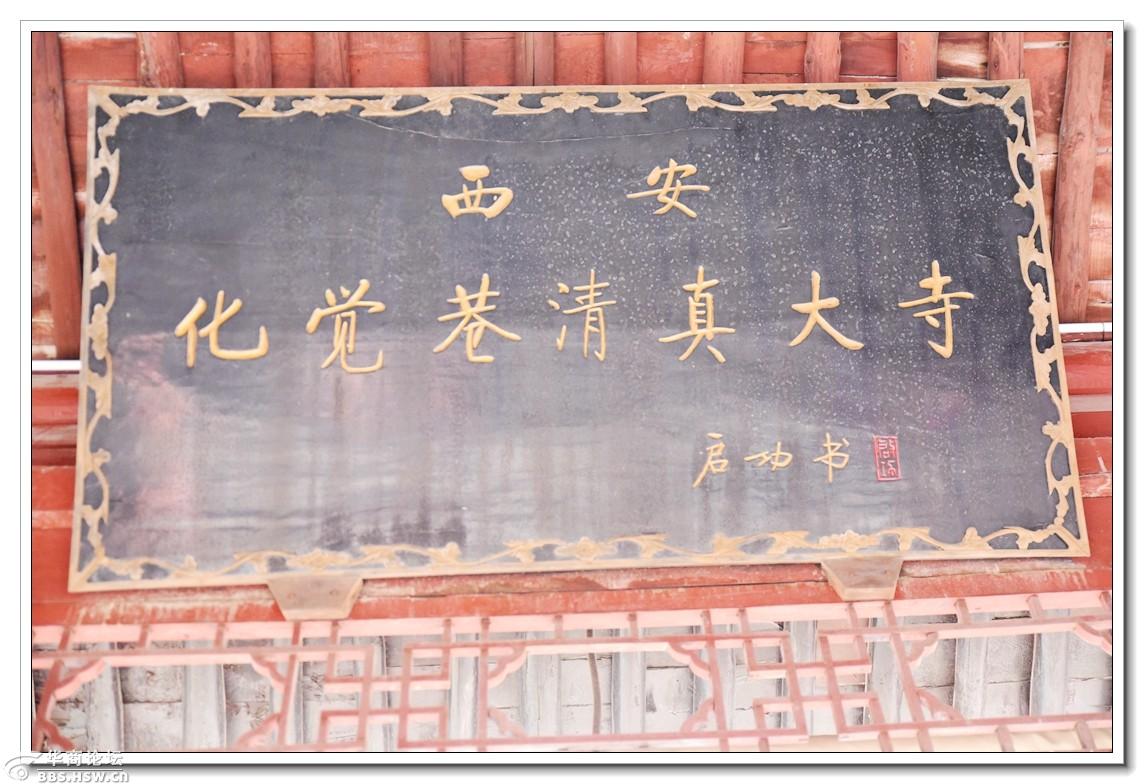 西安
化觉巷清真大寺
启功书
启功
华商论坛
BBS.HSW.CN